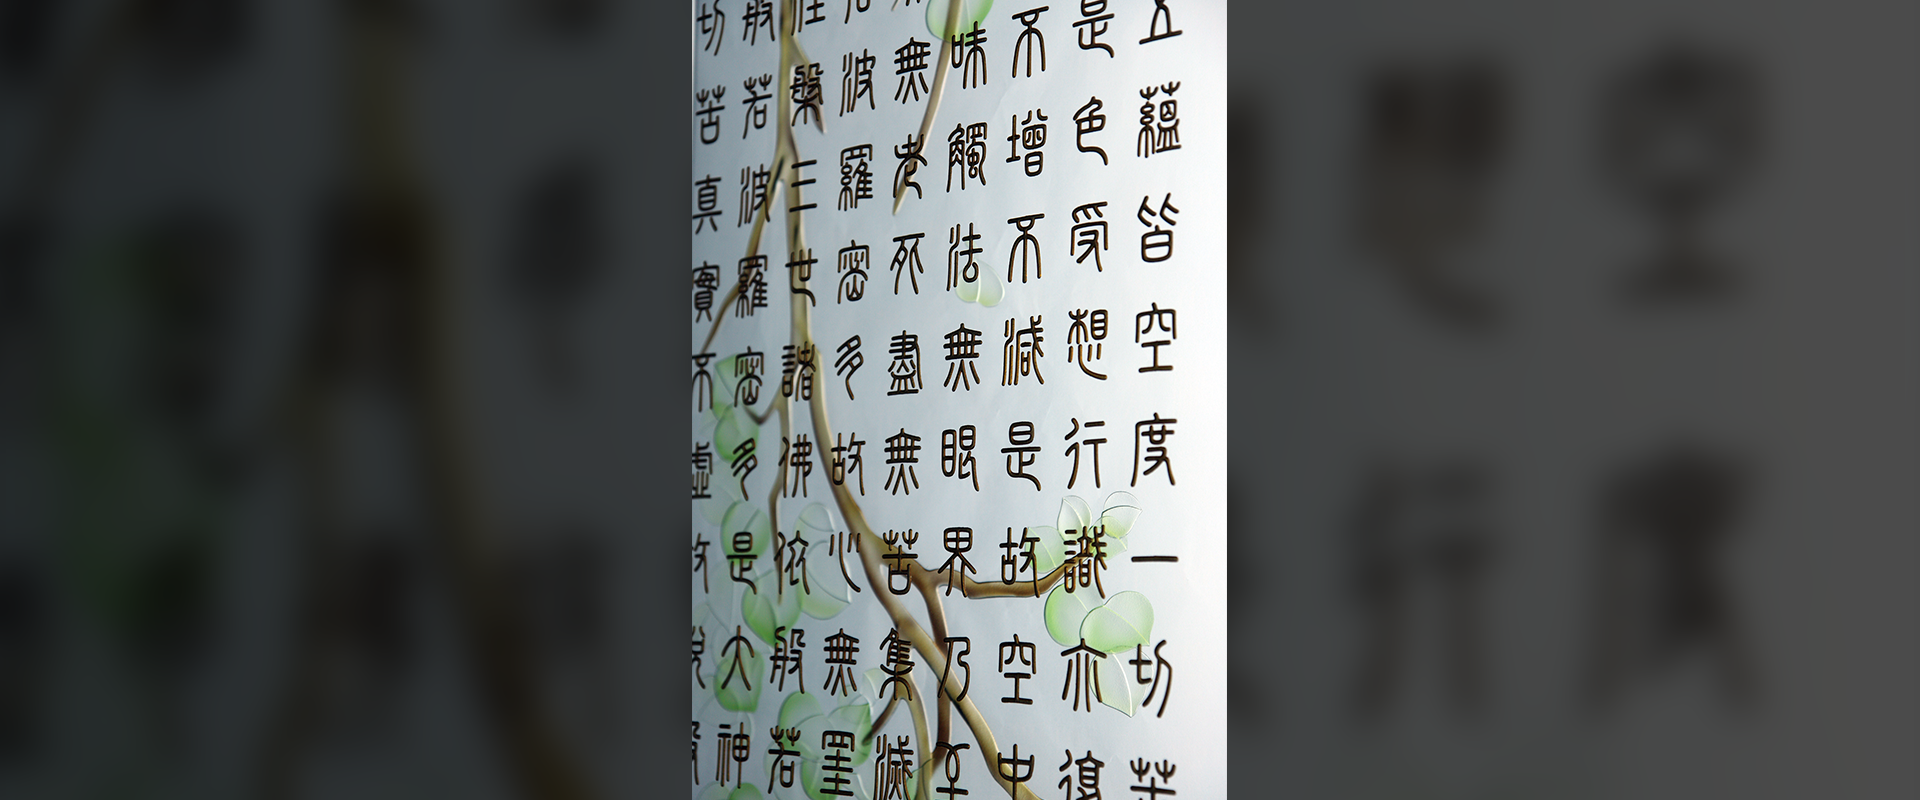 五蘊皆空度一切苦
是色受想行識亦復
不增不減是故空中
味觸法無眼界乃至
無老死盡無苦集滅
若波羅密多故心無罣
槃三世諸佛依般若
般若波羅密多是大神
切苦真實不虛故說般